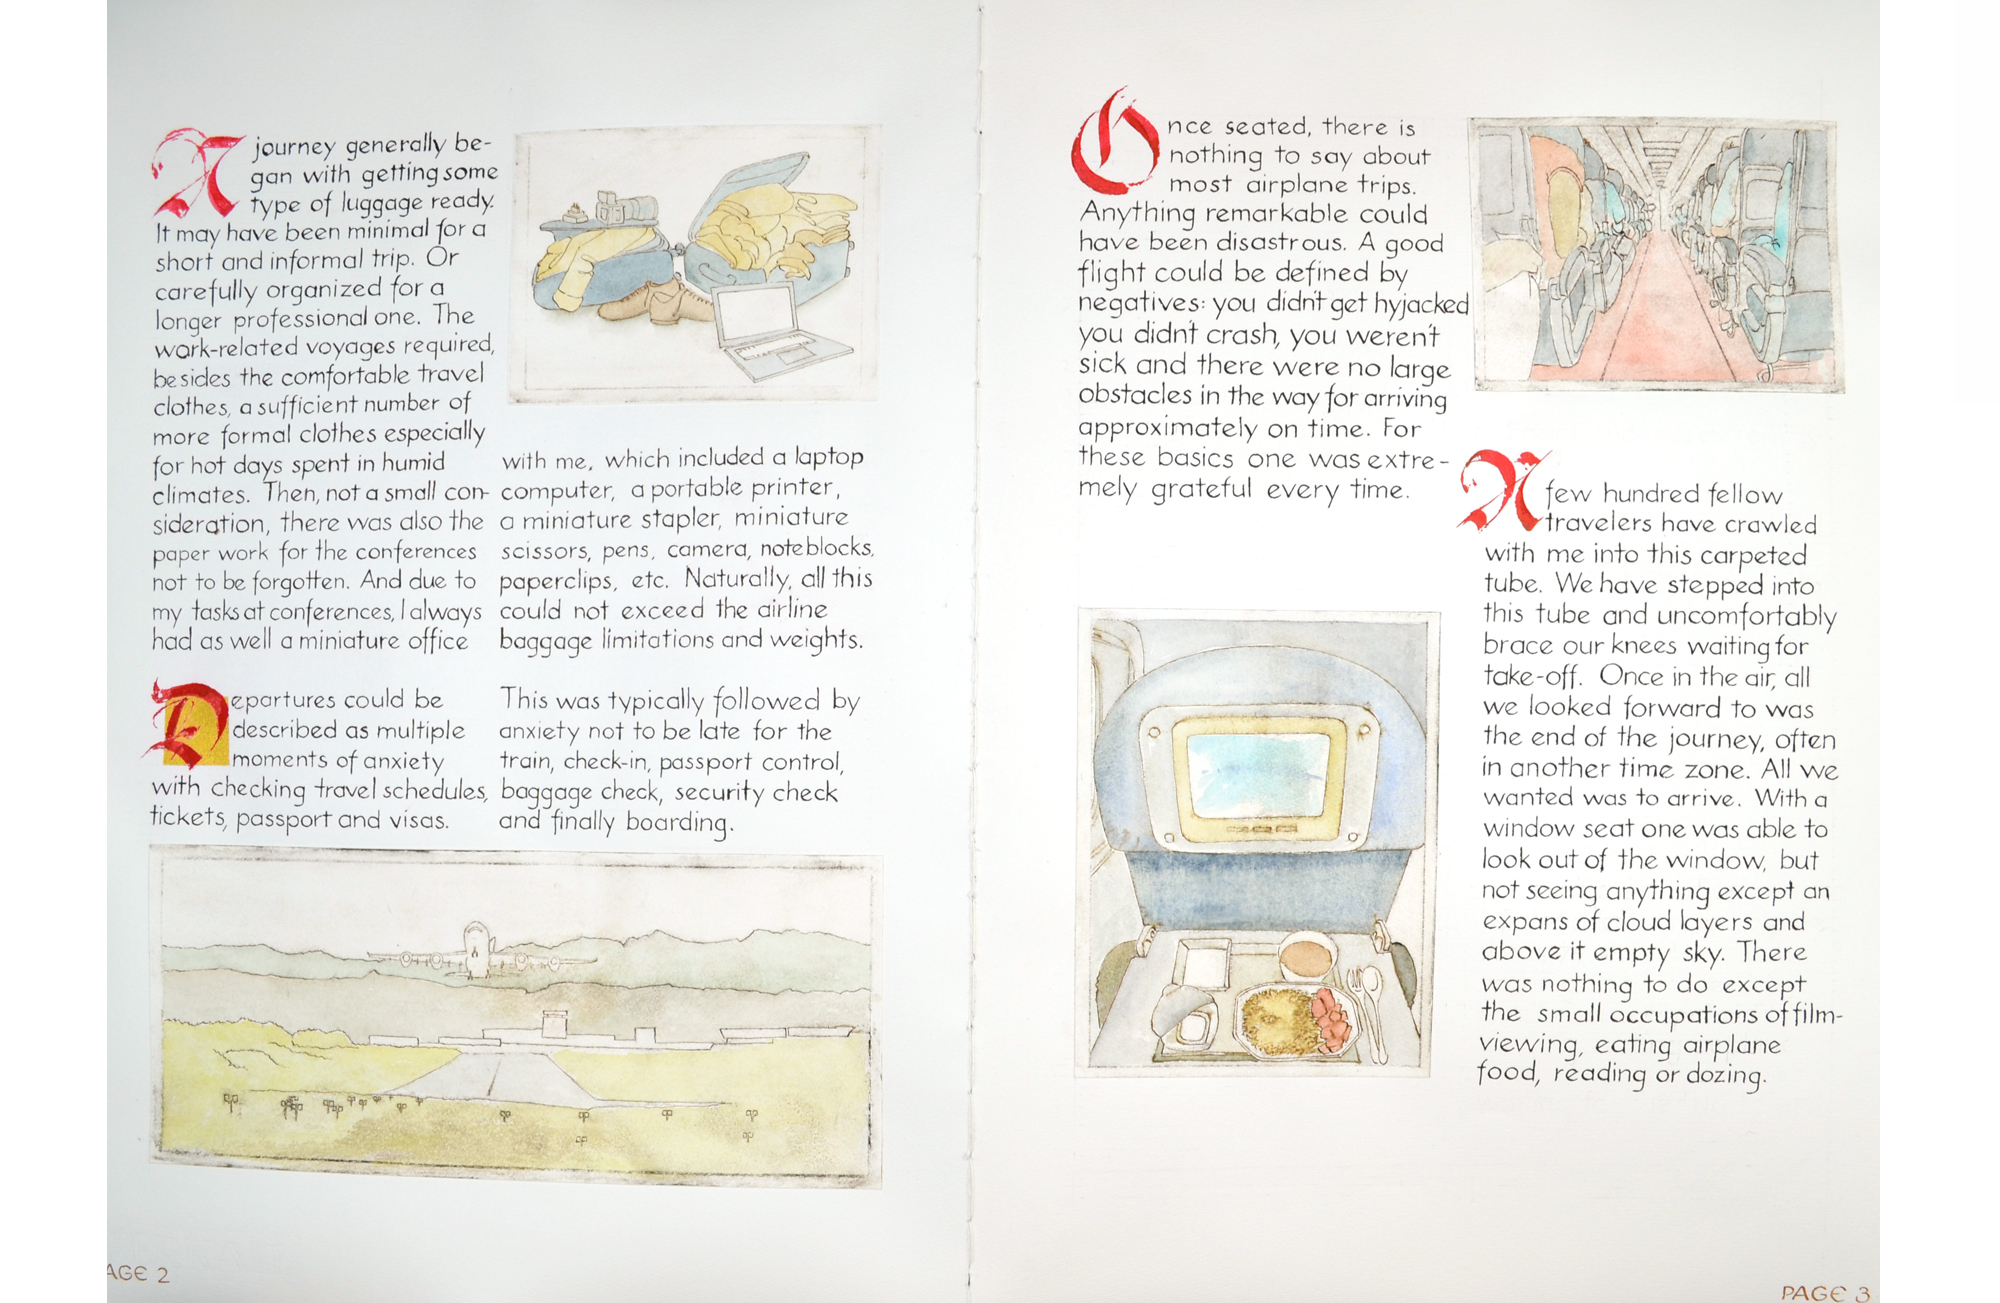 A journey generally be-
gan with getting some
type of luggage ready.
It may have been minimal for a
short and informal trip. Or
carefully organized for a
longer professional one. The
work-related voyages required,
besides the comfortable travel
clothes, a sufficient number of
more formal clothes especially
for hot days spent in humid
climates. Then, not a small con-
sideration, there was also the
paper work for the conferences
not to be forgotten. And due to
my tasks at conferences, I always
had as well a miniature office
with me, which included a laptop
computer, a portable printer,
a miniature stapler, miniature
scissors, pens, camera, noteblocks,
paperclips, etc. Naturally, all this
could not exceed the airline
baggage limitations and weights.
Departures could be
described as multiple
moments of anxiety
with checking travel schedules,
tickets, passport and visas.
This was typically followed by
anxiety not to be late for the
train, check-in, passport control,
baggage check, security check
and finally boarding.
AGE 2
Once seated, there is
nothing to say about
most airplane trips.
Anything remarkable could
have been disastrous. A good
flight could be defined by
negatives: you didn't get hyjacked
you didn't crash, you weren't
sick and there were no large
obstacles in the way for arriving
approximately on time. For
these basics one was extre-
mely grateful every time.
A few hundred fellow
travelers have crawled
with me into this carpeted
tube. We have stepped into
this tube and uncomfortably
brace our knees waiting for
take-off. Once in the air, all
we looked forward to was
the end of the journey, often
in another time zone. All we
wanted was to arrive. With a
window seat one was able to
look out of the window, but
not seeing anything except an
expans of cloud layers and
above it empty sky. There
was nothing to do except
the small occupations of film-
viewing, eating airplane
food, reading or dozing.
PAGE 3